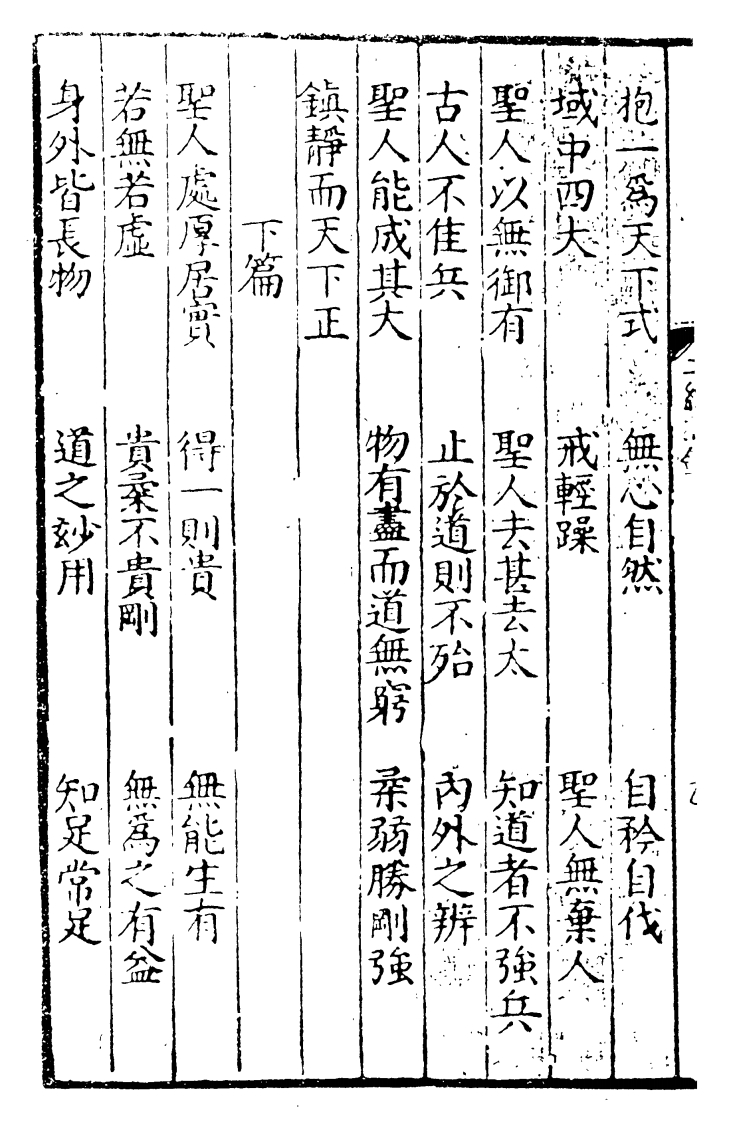 抱一爲天下式　無心自然　自矜自伐
域中四大　戒輕躁　聖人無棄人
聖人以無御有　聖人去甚去太　知道者不強兵
古人不佳兵　止於道則不殆　內外之辨
聖人能成其大　物有盡而道無窮　柔弱勝剛強
鎮靜而天下正
下篇
聖人處厚居實　得一則貴　無能生有
若無若虛　貴柔不貴剛　無爲之有益
身外皆長物　道之妙用　知足常足